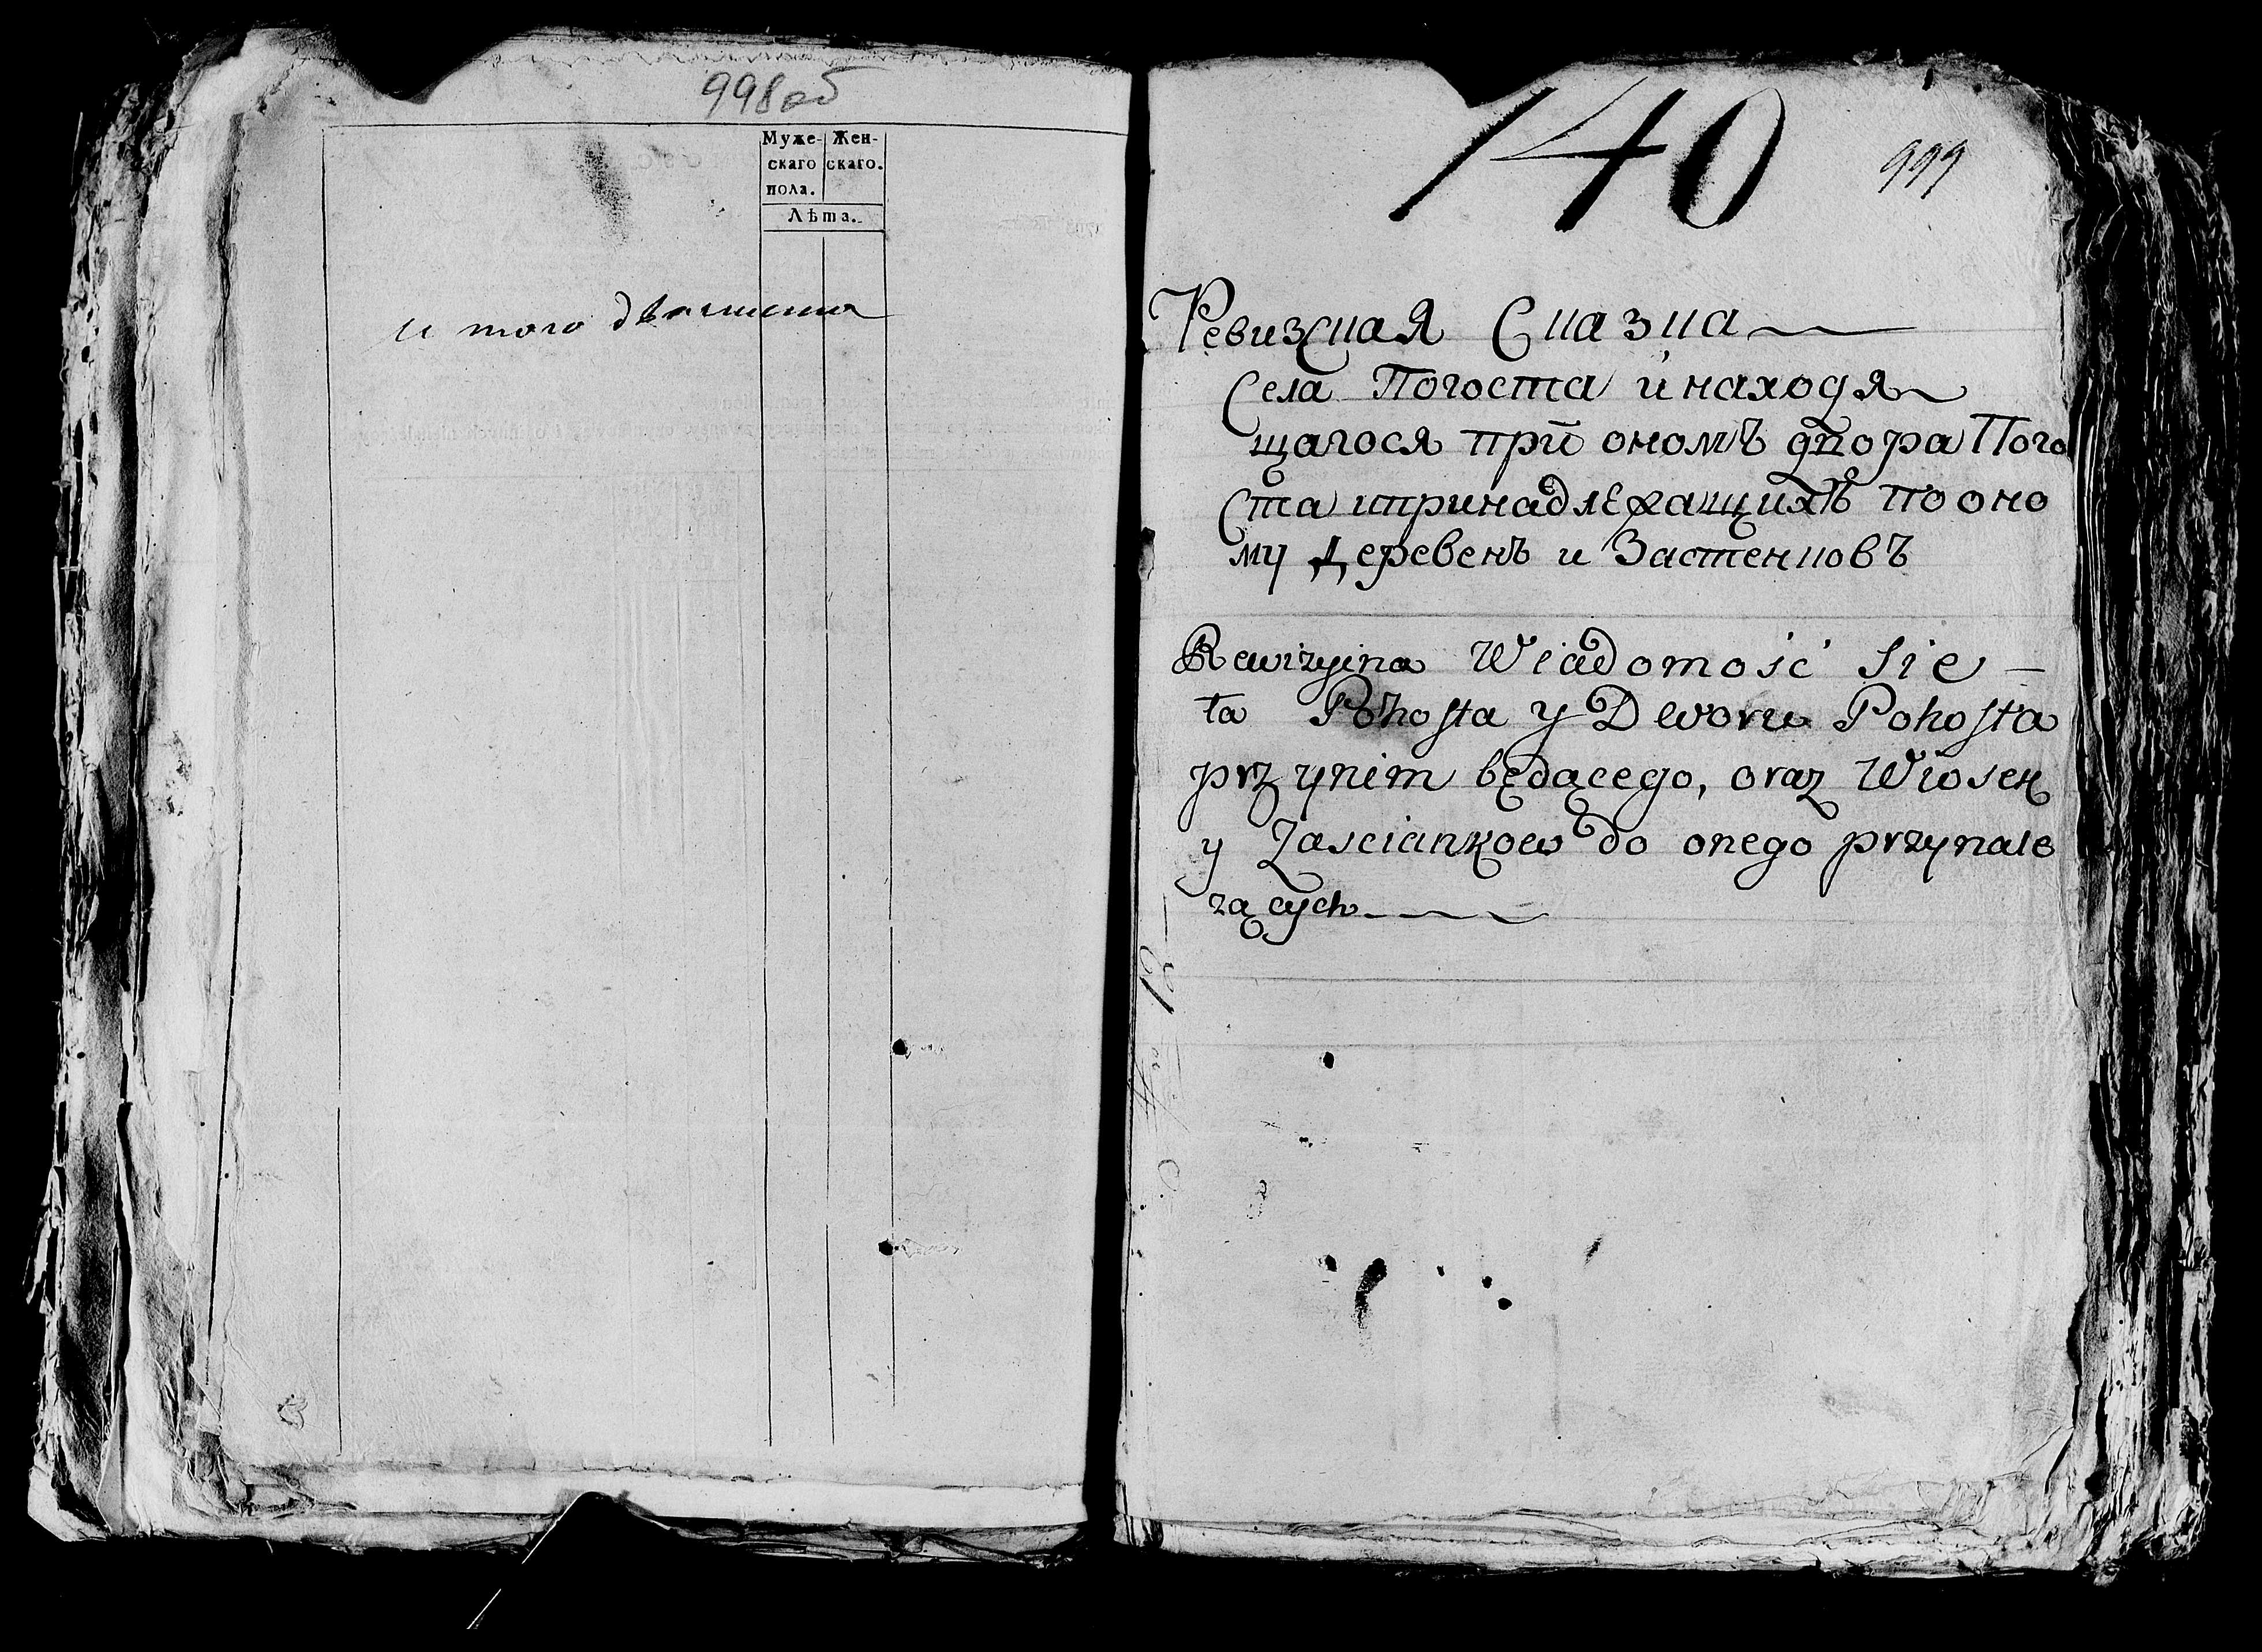 998об
Муже- Жен-
скаго скаго.
пола.
Лѣта.
и того
140
999
Ревизская Сказка
Села Погоста и находя
щагося при ономъ двора Пого
ста и принадлежащихъ по оно
му Деревень и Застенковъ
Rewizyina Wiadomość Sie-
ła Pohosta y Dworu Pohosta
przy nim będącego, oraz Wiosek
y Zasciankow do onego przynale
zących